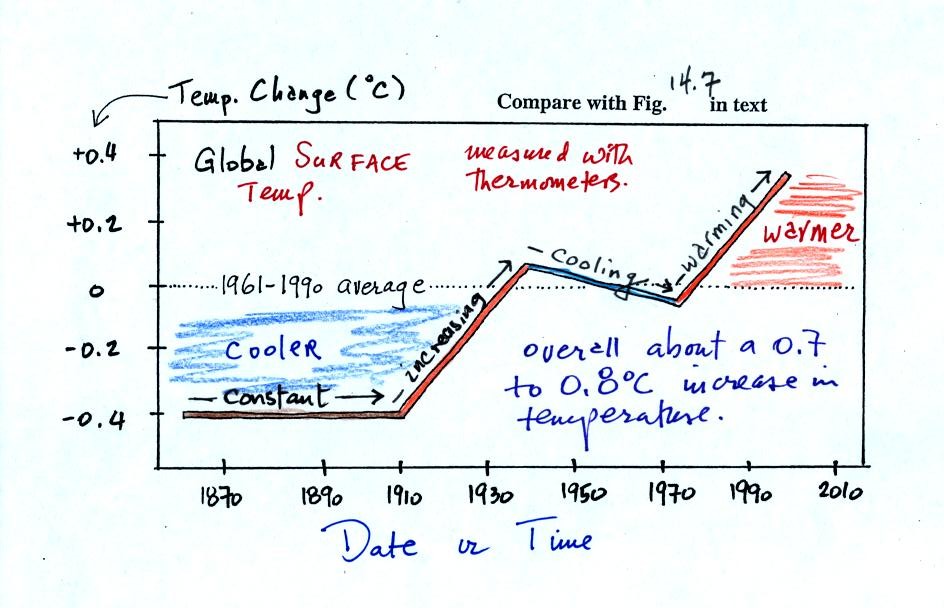 Temp. Change (°C)
Compare with Fig. 14.7 in text
+0.4
Global SURFACE
Temp.
measured with
thermometers.
+0.2
warming
warmer
cooling
0
1961-1990 average
increasing
-0.2
COOLER
overall about a 0.7
to 0.8°C increase in
temperature.
constant
-0.4
1870 1890 1910 1930 1950 1970 1990 2010
Date or Time